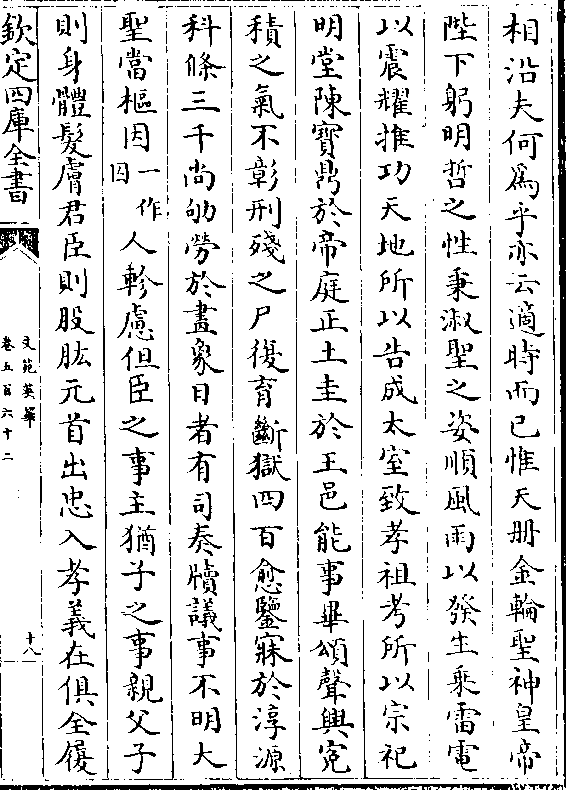 相沿夫何爲乎亦云適時而已惟天册金輪聖神皇帝
陛下躬明哲之性秉淑聖之姿順風雨以發生乘雷電
以震耀推功天地所以告成太室致孝祖考所以宗祀
明堂陳寶鼎於帝庭正土圭於王邑能事畢頌聲興寃
積之氣不彰刑殘之尸復育斷獄四百愈鑒寐於淳源
科條三千尚劬勞於畫象日者有司奏牘議事不明大
聖當樞因一作囙人軫慮但臣之事主猶子之事親父子
則身體髮膚君臣則股肱元首出忠入孝義在俱全履
欽定四庫全書
文苑英華
卷五百六十二
十八